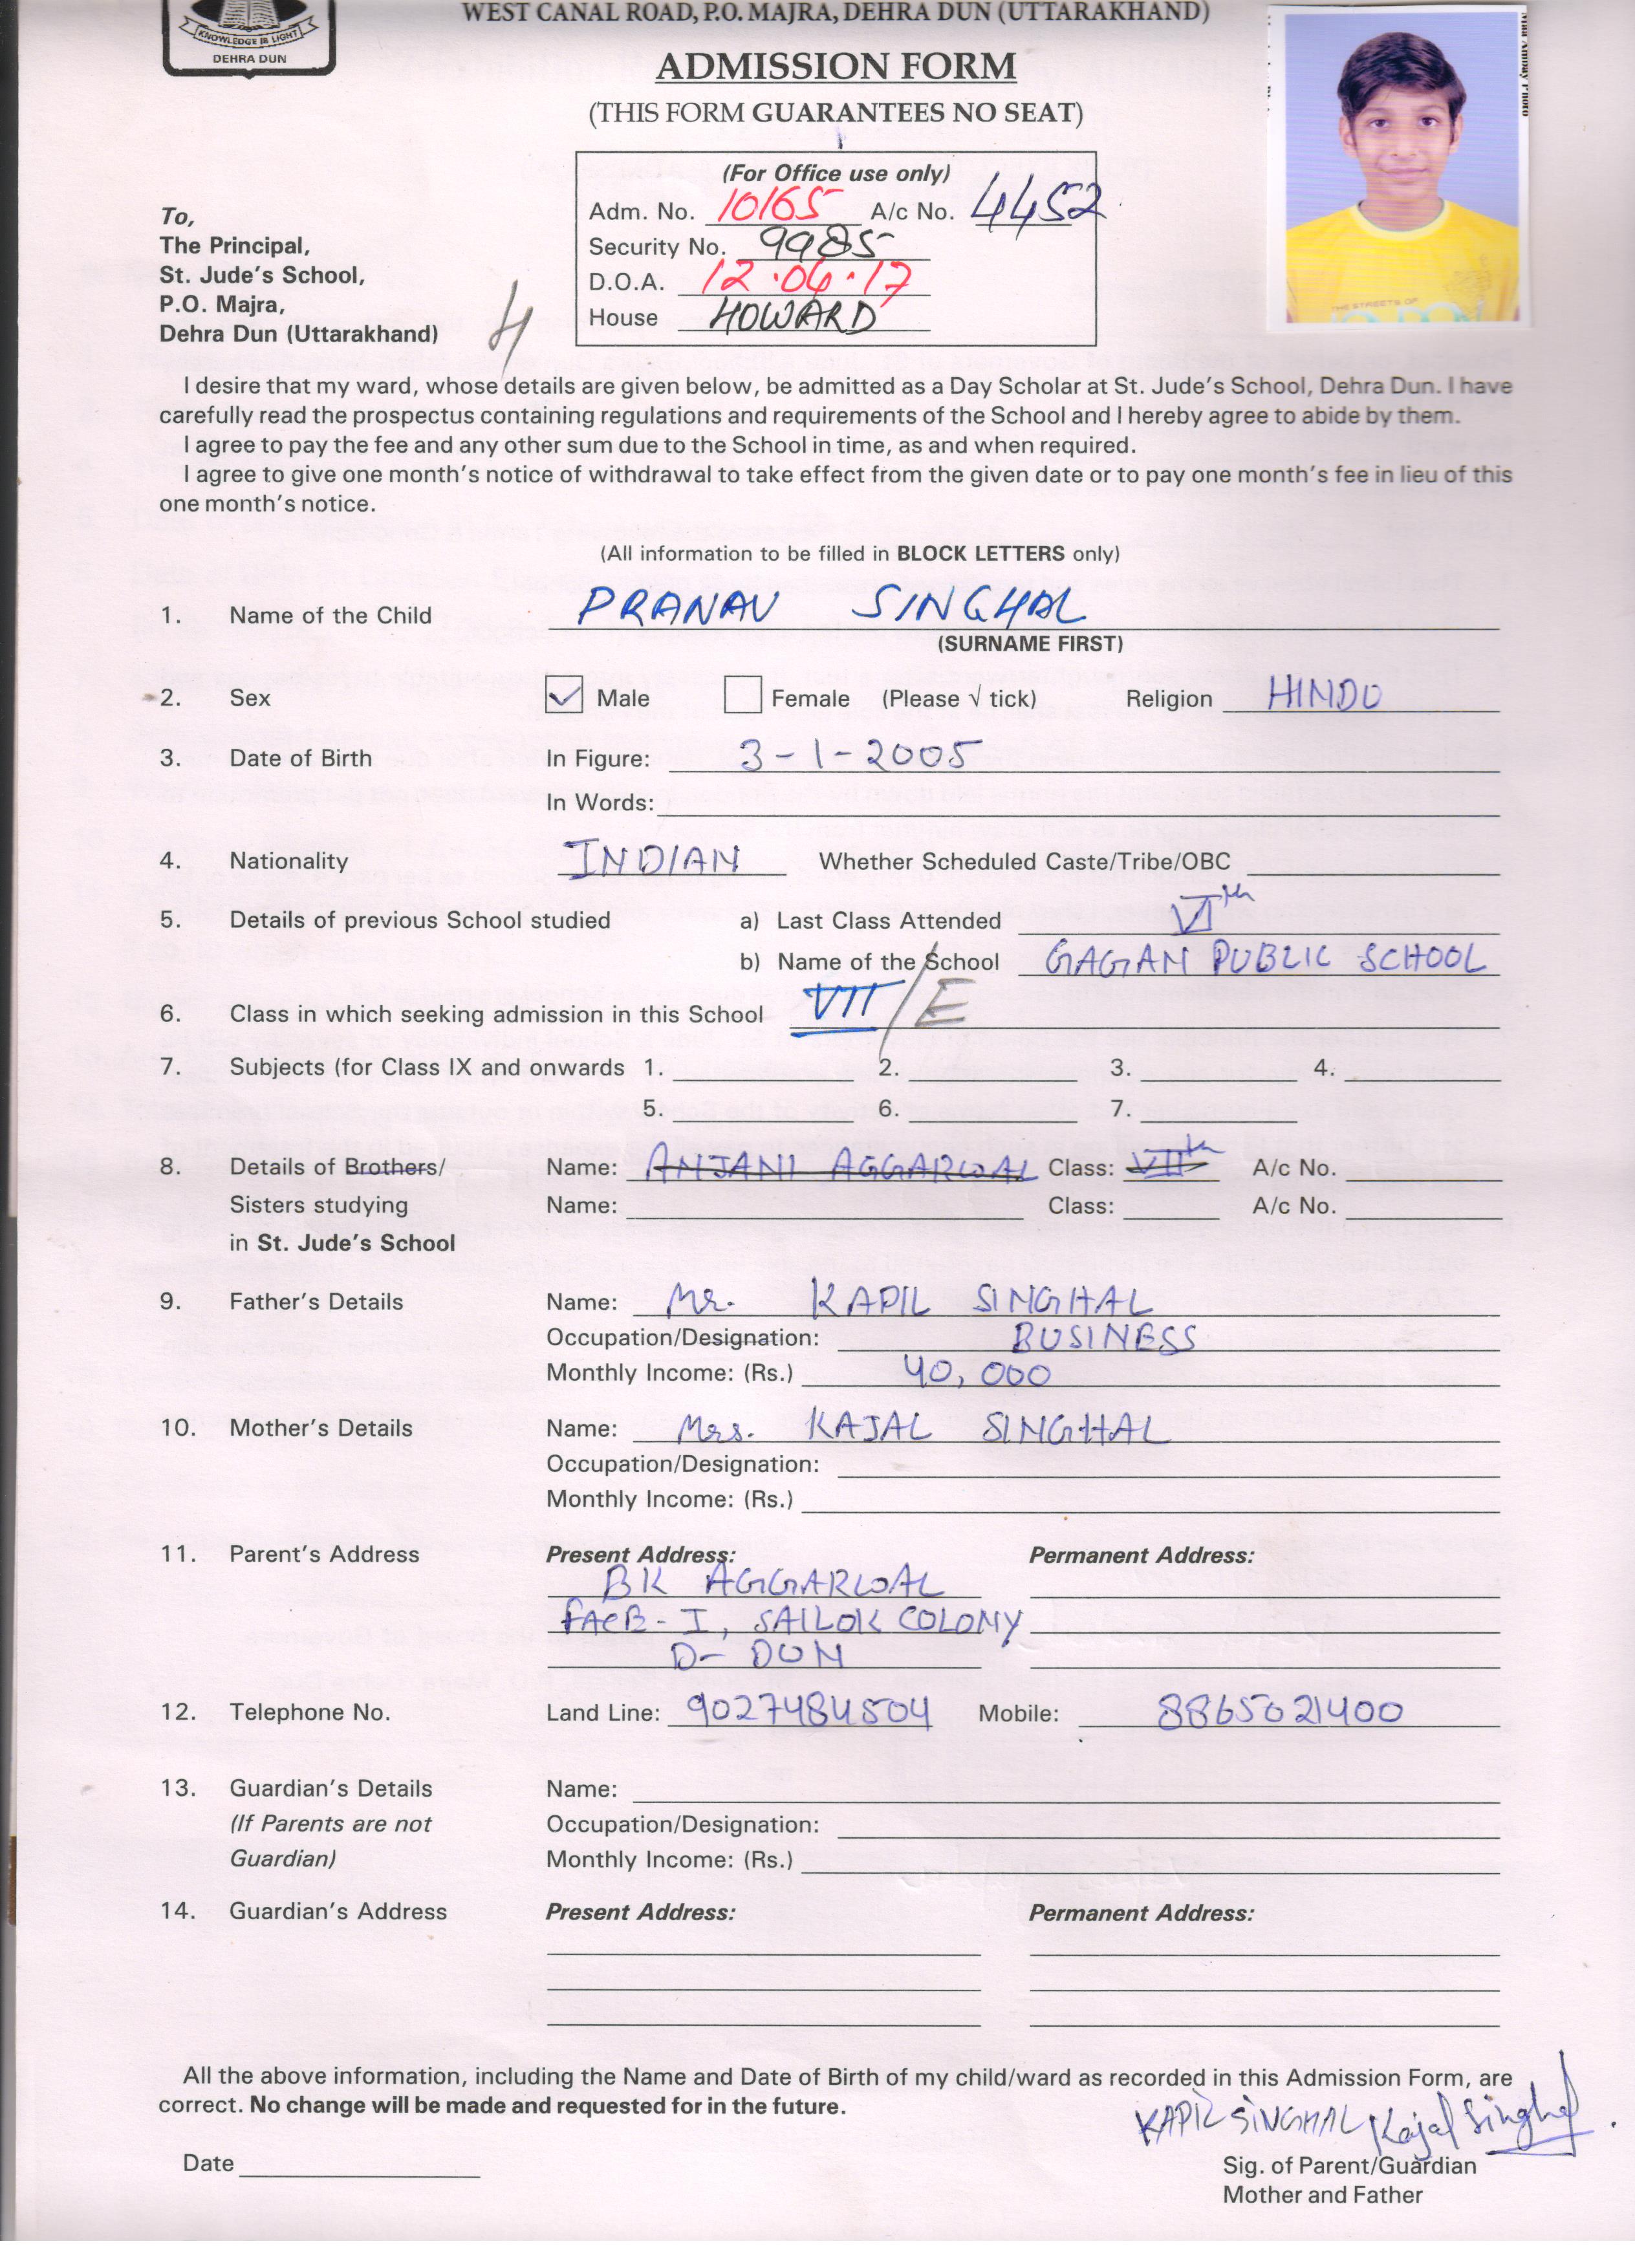 WEST CANAL ROAD, P.O. MAJRA, DEHRA DUN (UTTARAKHAND)
KNOWLEDGE IS LIGHT
DEHRA DUN
ADMISSION FORM
(THIS FORM GUARANTEES NO SEAT)
(For Office use only)
Adm. No. 10165 A/c No. 4452
Security No. 9985
D.O.A. 12.04.17
House HOWARD
To,
The Principal,
St. Jude's School,
P.O. Majra,
Dehra Dun (Uttarakhand)
H
THE STREETS OF
I desire that my ward, whose details are given below, be admitted as a Day Scholar at St. Jude's School, Dehra Dun. I have
carefully read the prospectus containing regulations and requirements of the School and I hereby agree to abide by them.
I agree to pay the fee and any other sum due to the School in time, as and when required.
I agree to give one month's notice of withdrawal to take effect from the given date or to pay one month's fee in lieu of this
one month's notice.
(All information to be filled in BLOCK LETTERS only)
1. Name of the Child PRANAV SINGHAL
(SURNAME FIRST)
2. Sex Male Female (Please √ tick) Religion HINDU
3. Date of Birth In Figure: 3-1-2005
In Words:
4. Nationality INDIAN Whether Scheduled Caste/Tribe/OBC
5. Details of previous School studied a) Last Class Attended VIth
b) Name of the School GAGAN PUBLIC SCHOOL
6. Class in which seeking admission in this School VII/E
7. Subjects (for Class IX and onwards 1. 2. 3. 4.
5. 6. 7.
8. Details of Brothers/ Name: ANJANI AGGARWAL Class: VIIth A/c No.
Sisters studying Name: Class: A/c No.
in St. Jude's School
9. Father's Details Name: Mr. KAPIL SINGHAL
Occupation/Designation: BUSINESS
Monthly Income: (Rs.) 40,000
10. Mother's Details Name: Mrs. KAJAL SINGHAL
Occupation/Designation:
Monthly Income: (Rs.)
11. Parent's Address Present Address: Permanent Address:
BK AGGARWAL
I, SAILOK COLONY
D- DUN
12. Telephone No. Land Line: 9027484504 Mobile: 8865021400
13. Guardian's Details Name:
(If Parents are not Occupation/Designation:
Guardian) Monthly Income: (Rs.)
14. Guardian's Address Present Address: Permanent Address:
All the above information, including the Name and Date of Birth of my child/ward as recorded in this Admission Form, are
correct. No change will be made and requested for in the future.
KAPIL SINGHAL Kajal Singhal
Date Sig. of Parent/Guardian
Mother and Father